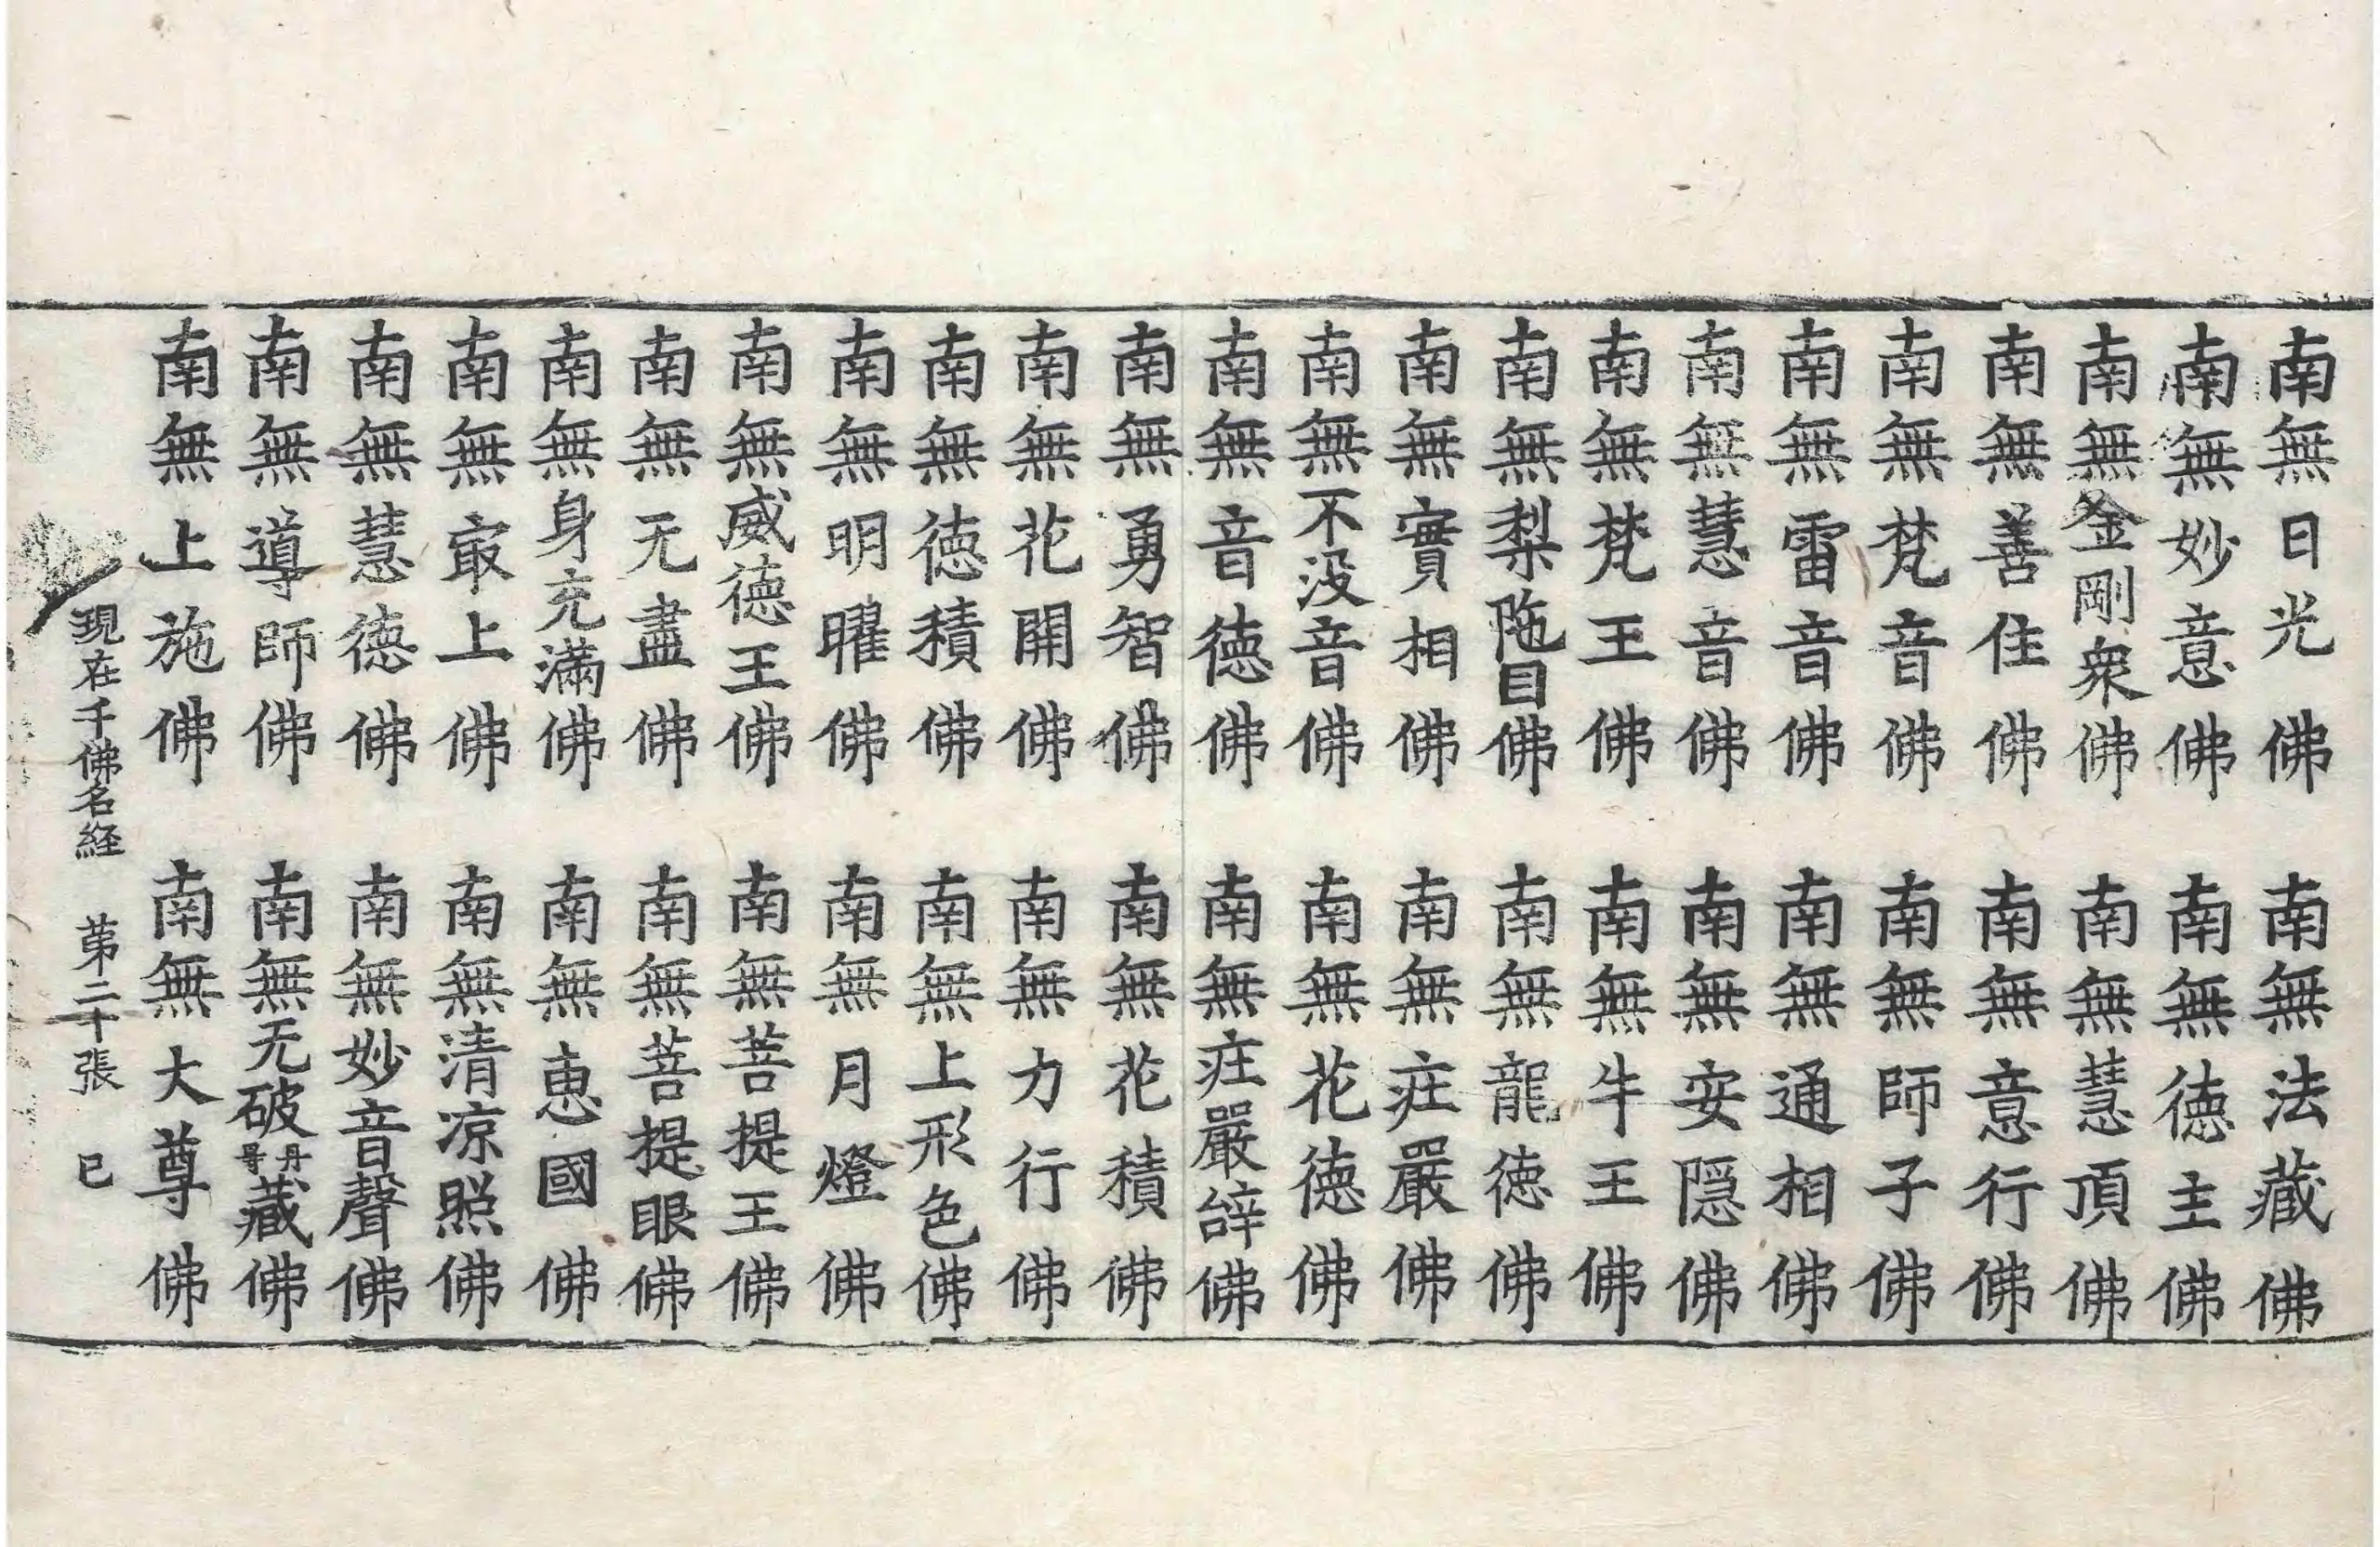 南無日光佛　南無法藏佛
南無妙意佛　南無德主佛
南無金剛衆佛　南無慧頂佛
南無善住佛　南無意行佛
南無梵音佛　南無師子佛
南無雷音佛　南無通相佛
南無慧音佛　南無安隠佛
南無梵王佛　南無牛王佛
南無梨陁目佛　南無龍德佛
南無實相佛　南無莊嚴佛
南無不没音佛　南無花德佛
南無音德佛　南無莊嚴辝佛
南無勇智佛　南無花積佛
南無花開佛　南無力行佛
南無德積佛　南無上形色佛
南無明曜佛　南無月燈佛
南無威德王佛　南無菩提王佛
南無无盡佛　南無菩提眼佛
南無身充滿佛　南無恵國佛
南無㝡上佛　南無清凉照佛
南無慧德佛　南無妙音聲佛
南無導師佛　南無无破丹号藏佛
南無上施佛　南無大尊佛
現在千佛名経　苐二十張　已